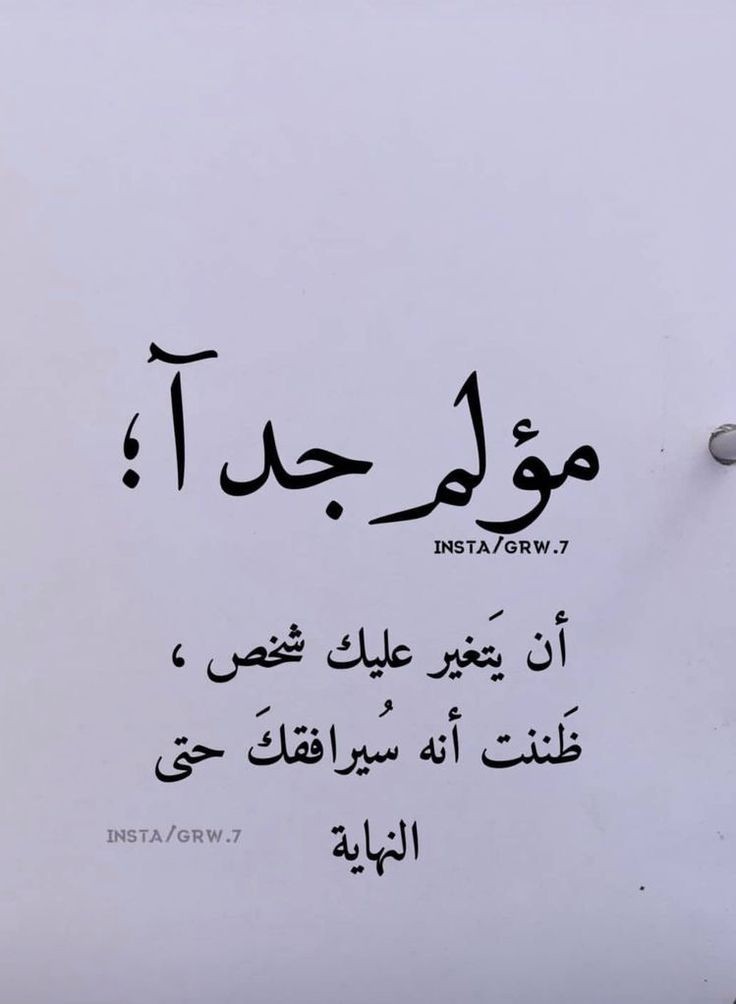 مؤلم جدآ ؛
INSTA/GRW.7
أن يَتغير عليك شخص ،
ظَننت أنه سُيرافقكَ حتى
النهاية
INSTA/GRW.7